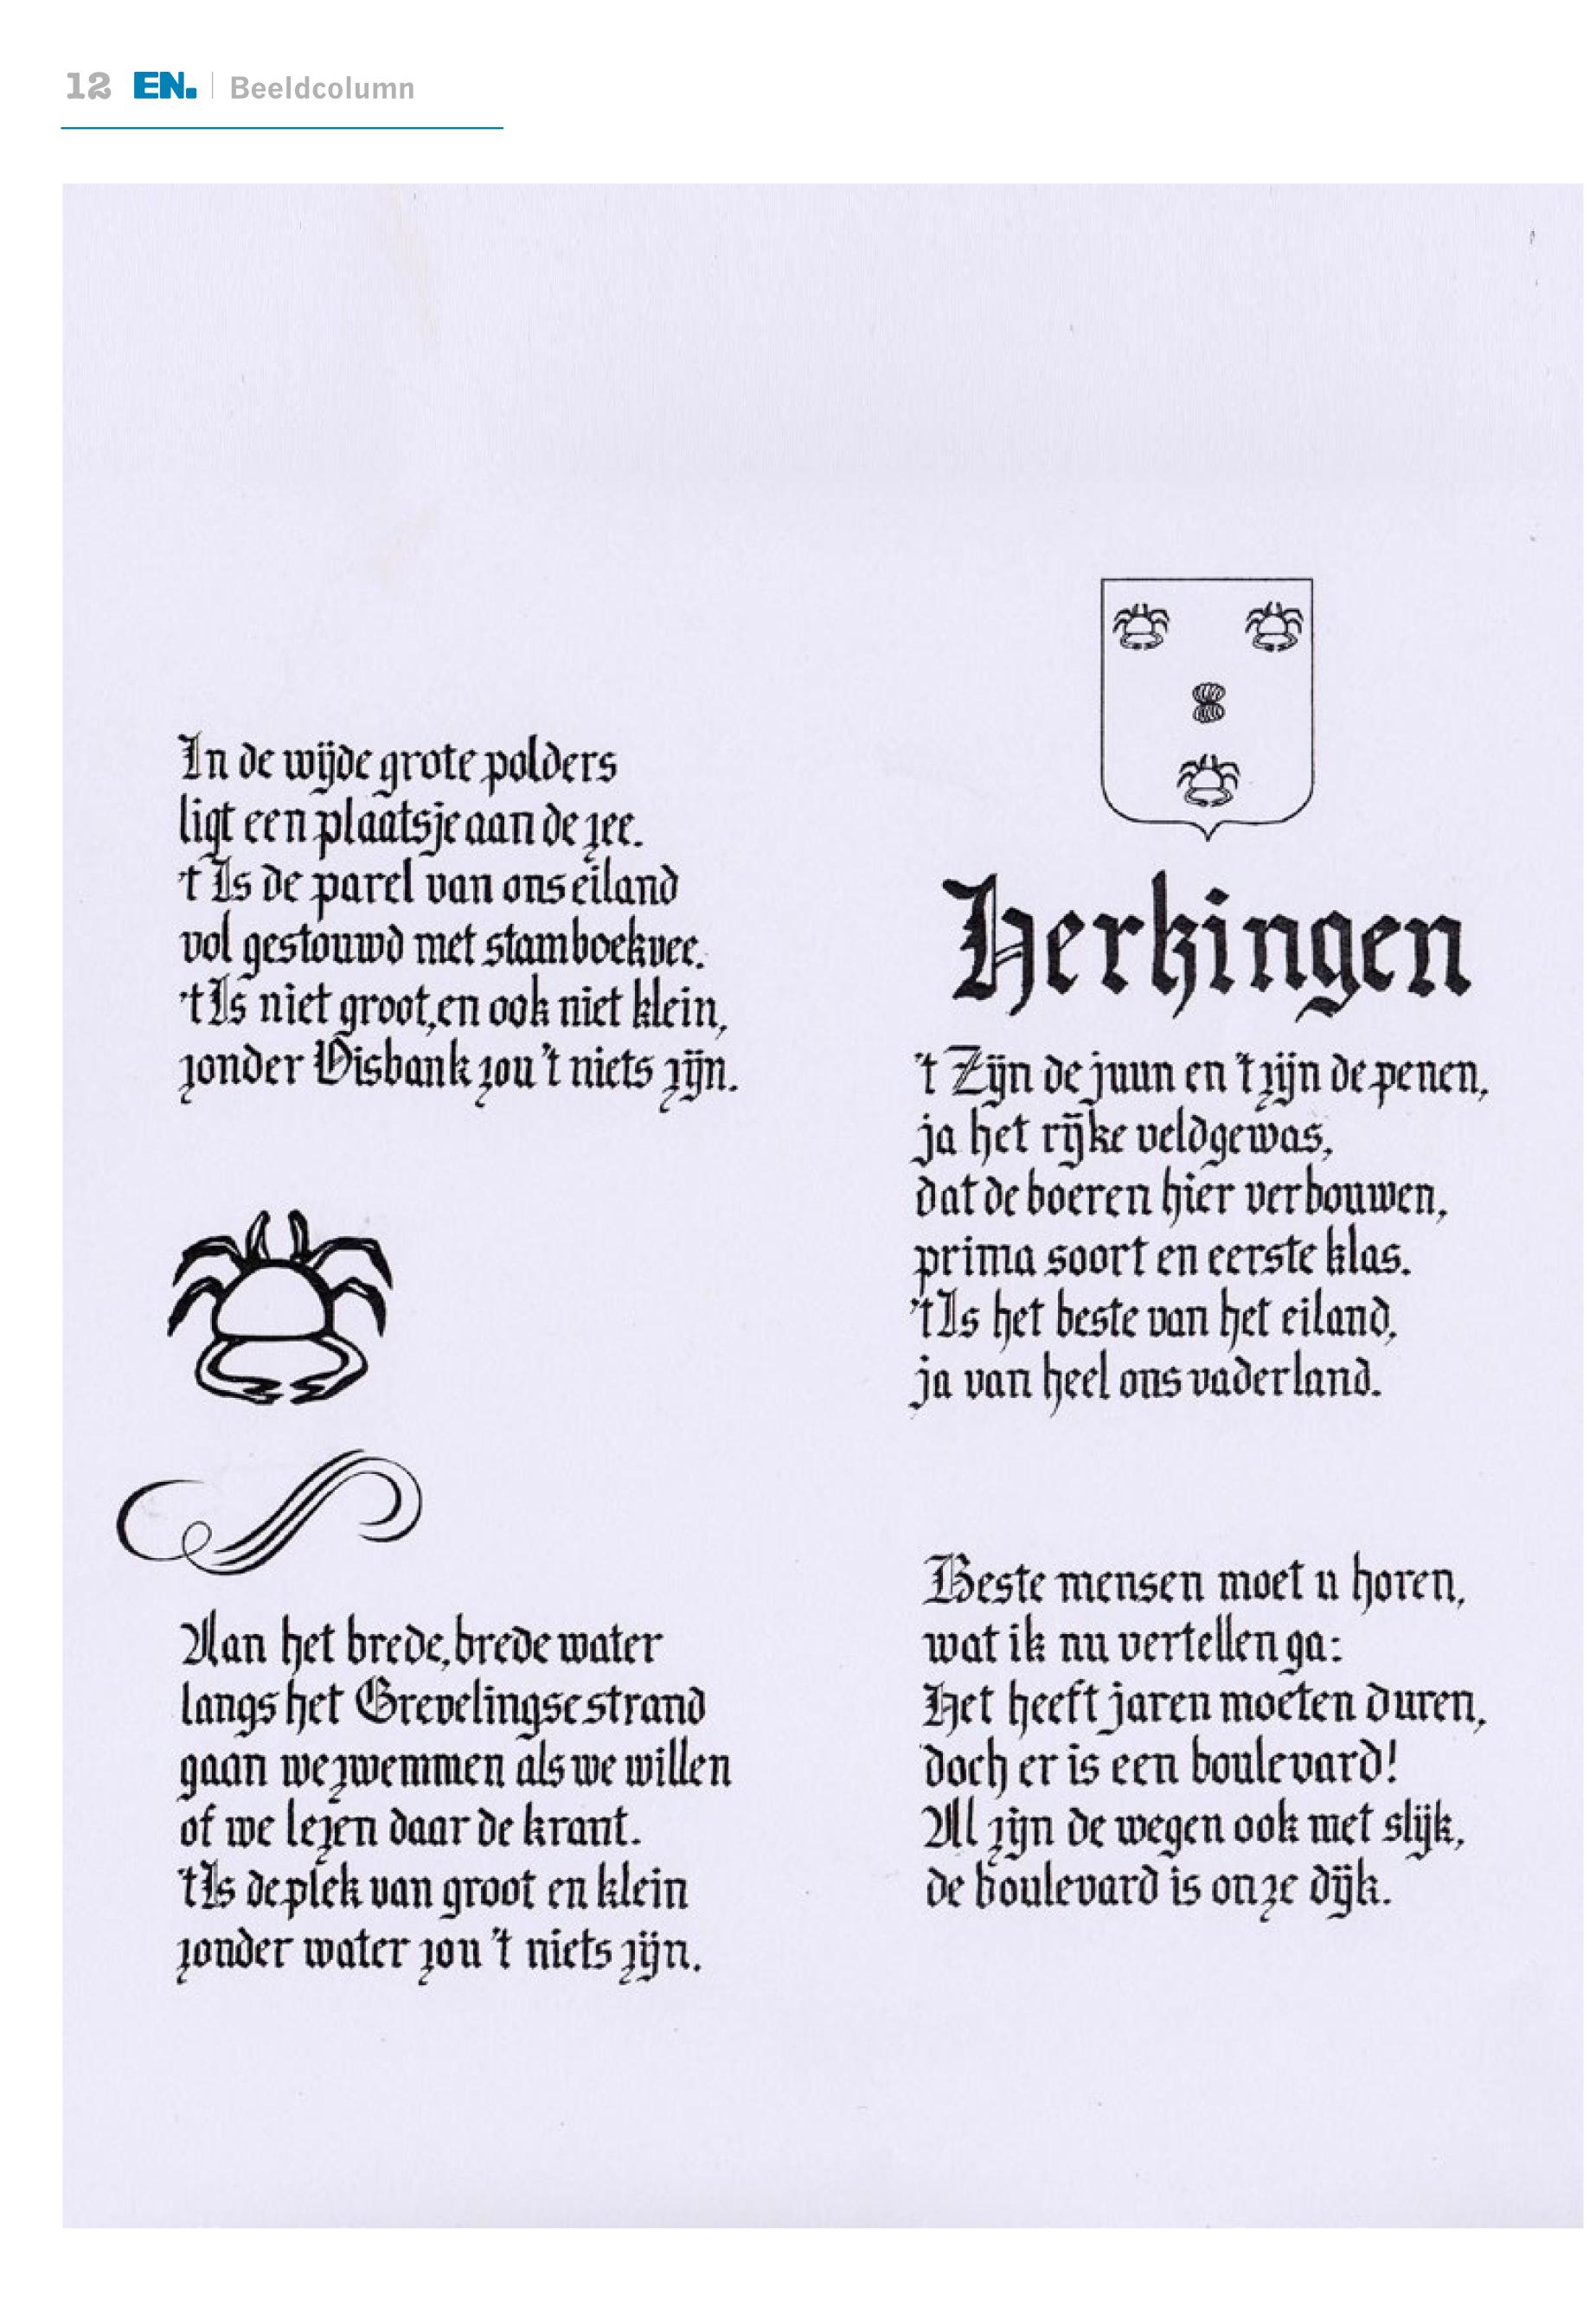 12 EN. Beeldcolumn
In de wijde grote polders
ligt een plaatsje aan de zee.
't Is de parel van ons eiland
vol gestouwd met stamboekvee.
't Is niet groot, en ook niet klein,
zonder Visbank zou 't niets zijn.
Aan het brede, brede water
langs het Grevelingse strand
gaan we zwemmen als we willen
of we lezen daar de krant.
't Is de plek van groot en klein
zonder water zou 't niets zijn.
Herkingen
't Zijn de juun en 't zijn de penen,
ja het rijke veldgewas,
dat de boeren hier verbouwen,
prima soort en eerste klas.
't Is het beste van het eiland,
ja van heel ons vaderland.
Beste mensen moet u horen,
wat ik nu vertellen ga:
Het heeft jaren moeten duren,
doch er is een boulevard!
Al zijn de wegen ook met slijk,
de boulevard is onze dijk.